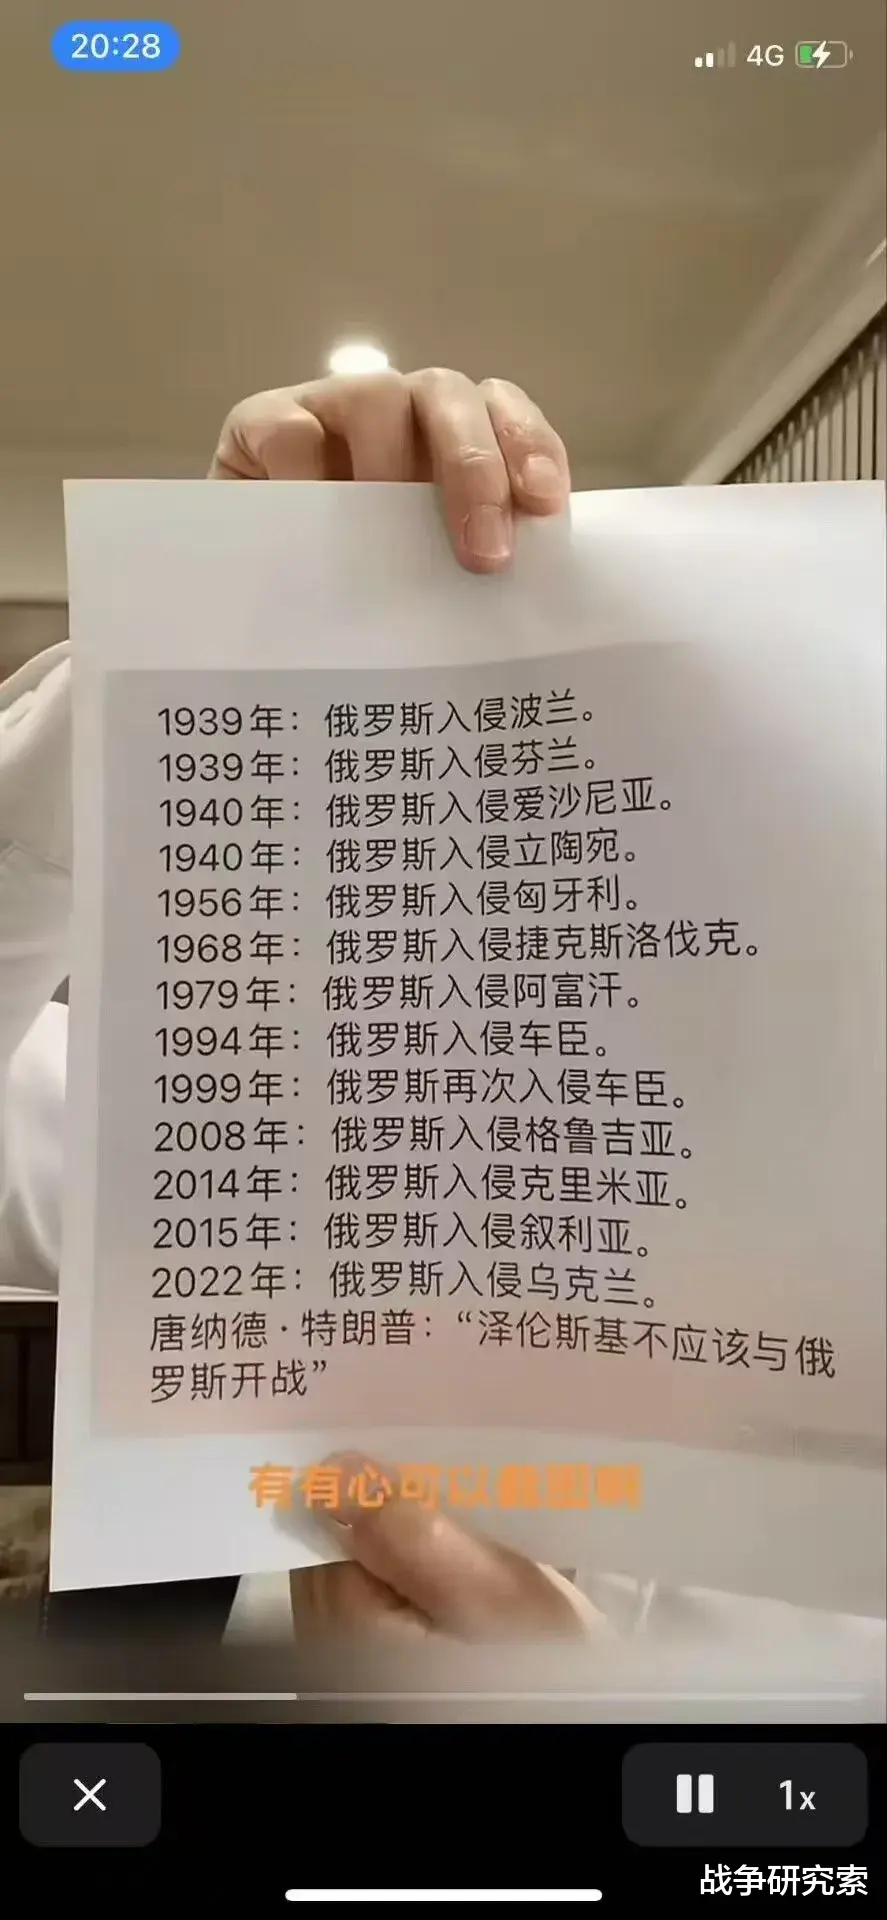 20:28
4G
1939年：俄罗斯入侵波兰。
1939年：俄罗斯入侵芬兰。
1940年：俄罗斯入侵爱沙尼亚。
1940年：俄罗斯入侵立陶宛。
1956年：俄罗斯入侵匈牙利。
1968年：俄罗斯入侵捷克斯洛伐克。
1979年：俄罗斯入侵阿富汗。
1994年：俄罗斯入侵车臣。
1999年：俄罗斯再次入侵车臣。
2008年：俄罗斯入侵格鲁吉亚。
2014年：俄罗斯入侵克里米亚。
2015年：俄罗斯入侵叙利亚。
2022年：俄罗斯入侵乌克兰。
唐纳德·特朗普：“泽伦斯基不应该与俄
罗斯开战”
有有心可以截图啊
1x
战争研究索